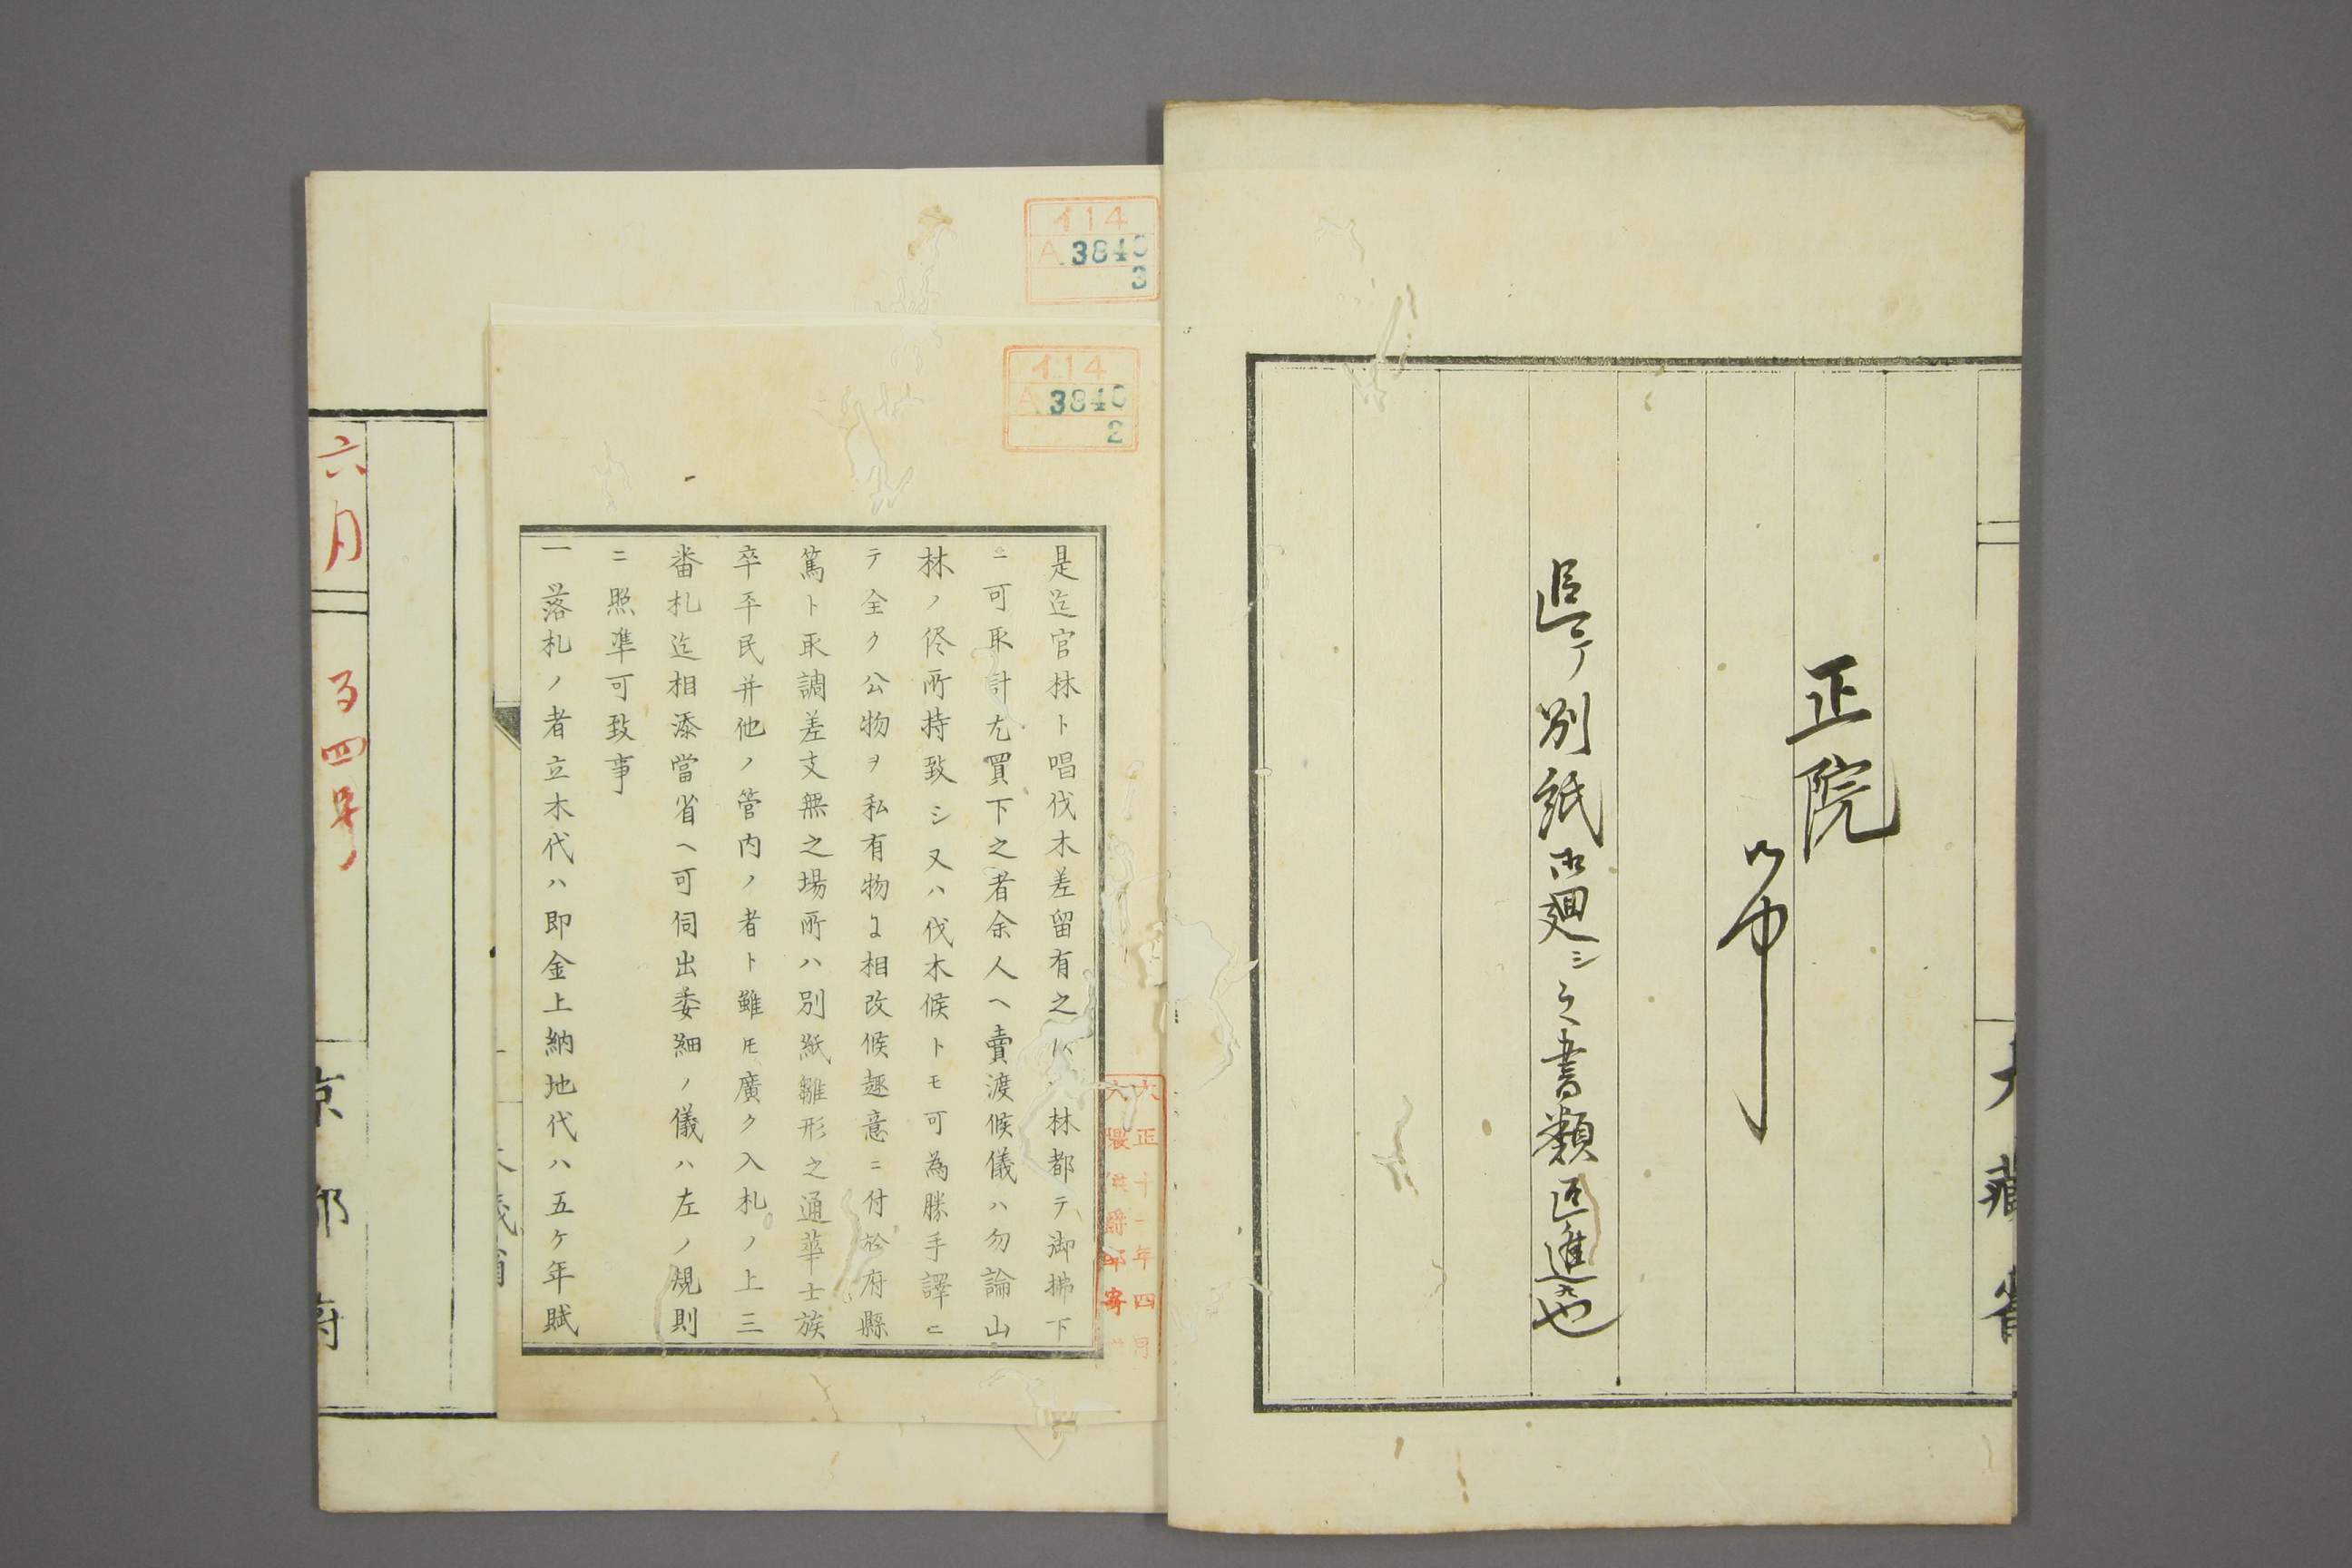 正院
御中
追テ別紙御廻シ之書類返進候也
大藏省
114
A 3840
3
114
A 3840
2
大正十一年四月
大隈侯爵邸寄
是迄官林ト唱伐木差留有之
林都テ御拂下
ニ可取計尤買下之者余人ヘ賣渡候儀ハ勿論山
林ノ侭所持致シ又ハ伐木候トモ可為勝手譯ニ
テ全ク公物ヲ私有物ニ相改候趣意ニ付於府縣
篤ト取調差支無之場所ハ別紙雛形之通華士族
卒平民并他ノ管内ノ者ト雖𪜈廣ク入札ノ上三
番札迄相添當省ヘ可伺出委細ノ儀ハ左ノ規則
ニ照準可致事
一落札ノ者立木代ハ即金上納地代ハ五ケ年賦
六月
四号
京都府